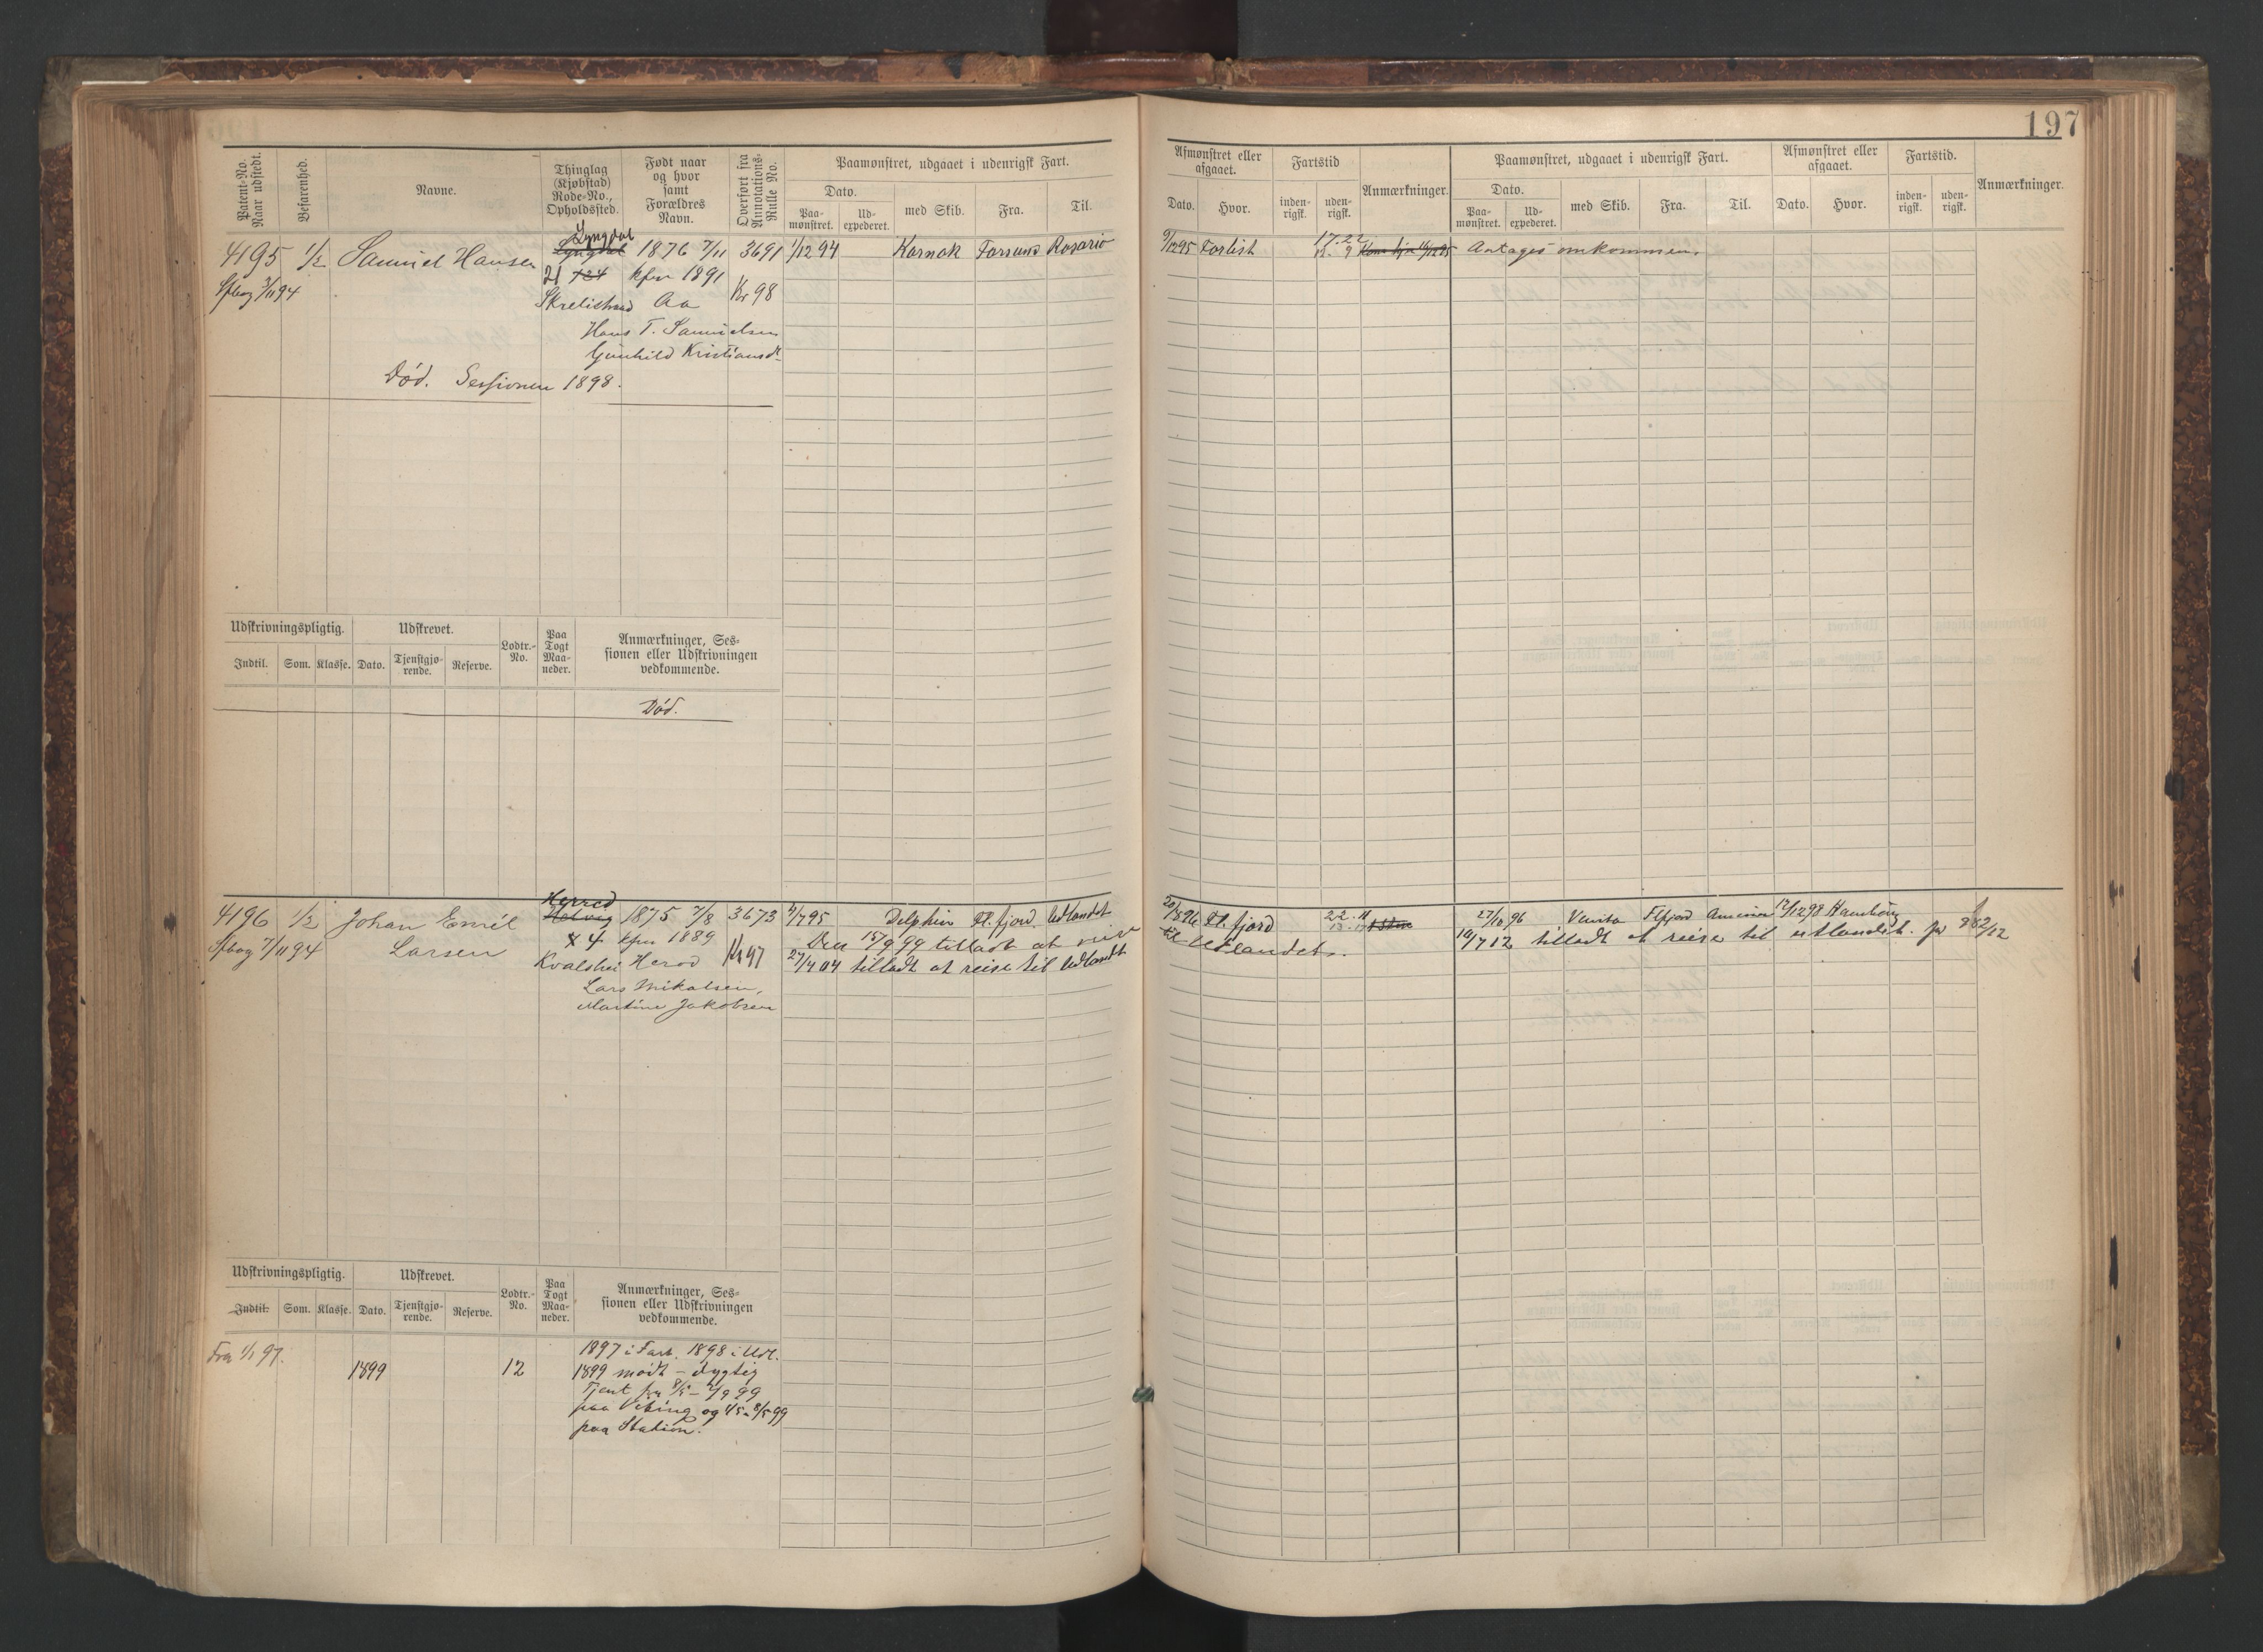 197
Patent-No. Naar udstedt.
Befarenhed.
Navne.
Thinglag (Kjøbstad) Rode-No., Opholdssted.
Født naar og hvor samt Forældres Navn.
Overført fra Annotations-Rulle No.
Paamønstret, udgaaet i udenrigsk Fart.
Dato.
Paa-mønstret.
Ud-expederet.
med Skib.
Fra.
Til.
Afmønstret eller afgaaet.
Dato.
Hvor.
Fartstid
inden-rigsk.
uden-rigsk.
Anmærkninger.
Paamønstret, udgaaet i udenrigsk Fart.
Dato.
Paa-mønstret.
Ud-expederet.
med Skib.
Fra.
Til.
Afmønstret eller afgaaet.
Dato.
Hvor.
Fartstid.
inden-rigsk.
uden-rigsk.
Anmærkninger.
Lyngdal
4195 1/2 Samuel Hansen Lyngdal 1876 7/11 3691 1/12 94 Karnak Farsund Rosario
21 724 kfm 1891
Kr 98
Aa
Hans T. Samuelsen
Gunhild Kristiansdt
Død. Sessionen 1898.
9/12 95 Forlist 17.22 Antages omkommen.
Udskrivningspligtig.
Udskrevet.
Indtil. Som. Klasse. Dato. Tjenstgjø-rende. Reserve.
Lodtr.-No.
Paa Togt Maa-neder.
Anmærkninger, Ses-sionen eller Udskrivningen vedkommende.
Død.
Herred
4196 1/2 Johan Emil 1875 7/8 3673 4/7 95 Delphin Fl.fjord Udlandet
Sfbog 7/11 94 Larsen x 4 kfm 1889 Kr 97 Den 15/9 99 tilladt at reise
Kvalshei Herod 27/4 04 tilladt at reise til Udlandt
Lars Mikalsen,
Martine Jakobsen
20/8 96 Fl. fjord 22.11
til Udlandet.
27/10 96 Fl.fjord 12/12 98 Hamburg
16/7 12 tilladt at reise til utlandet. 882/12
Udskrivningspligtig.
Udskrevet.
Indtil. Som. Klasse. Dato. Tjenstgjø-rende. Reserve.
Lodtr.-No.
Paa Togt Maa-neder.
Anmærkninger, Ses-sionen eller Udskrivningen vedkommende.
Fra 1/1 97.
1899 12
1897 i Fart. 1898 i Udl.
1899 mødt – dygtig
Tjent fra 8/5 – 4/9 99
paa Viking og 4/5 – 8/5 99
paa Station.